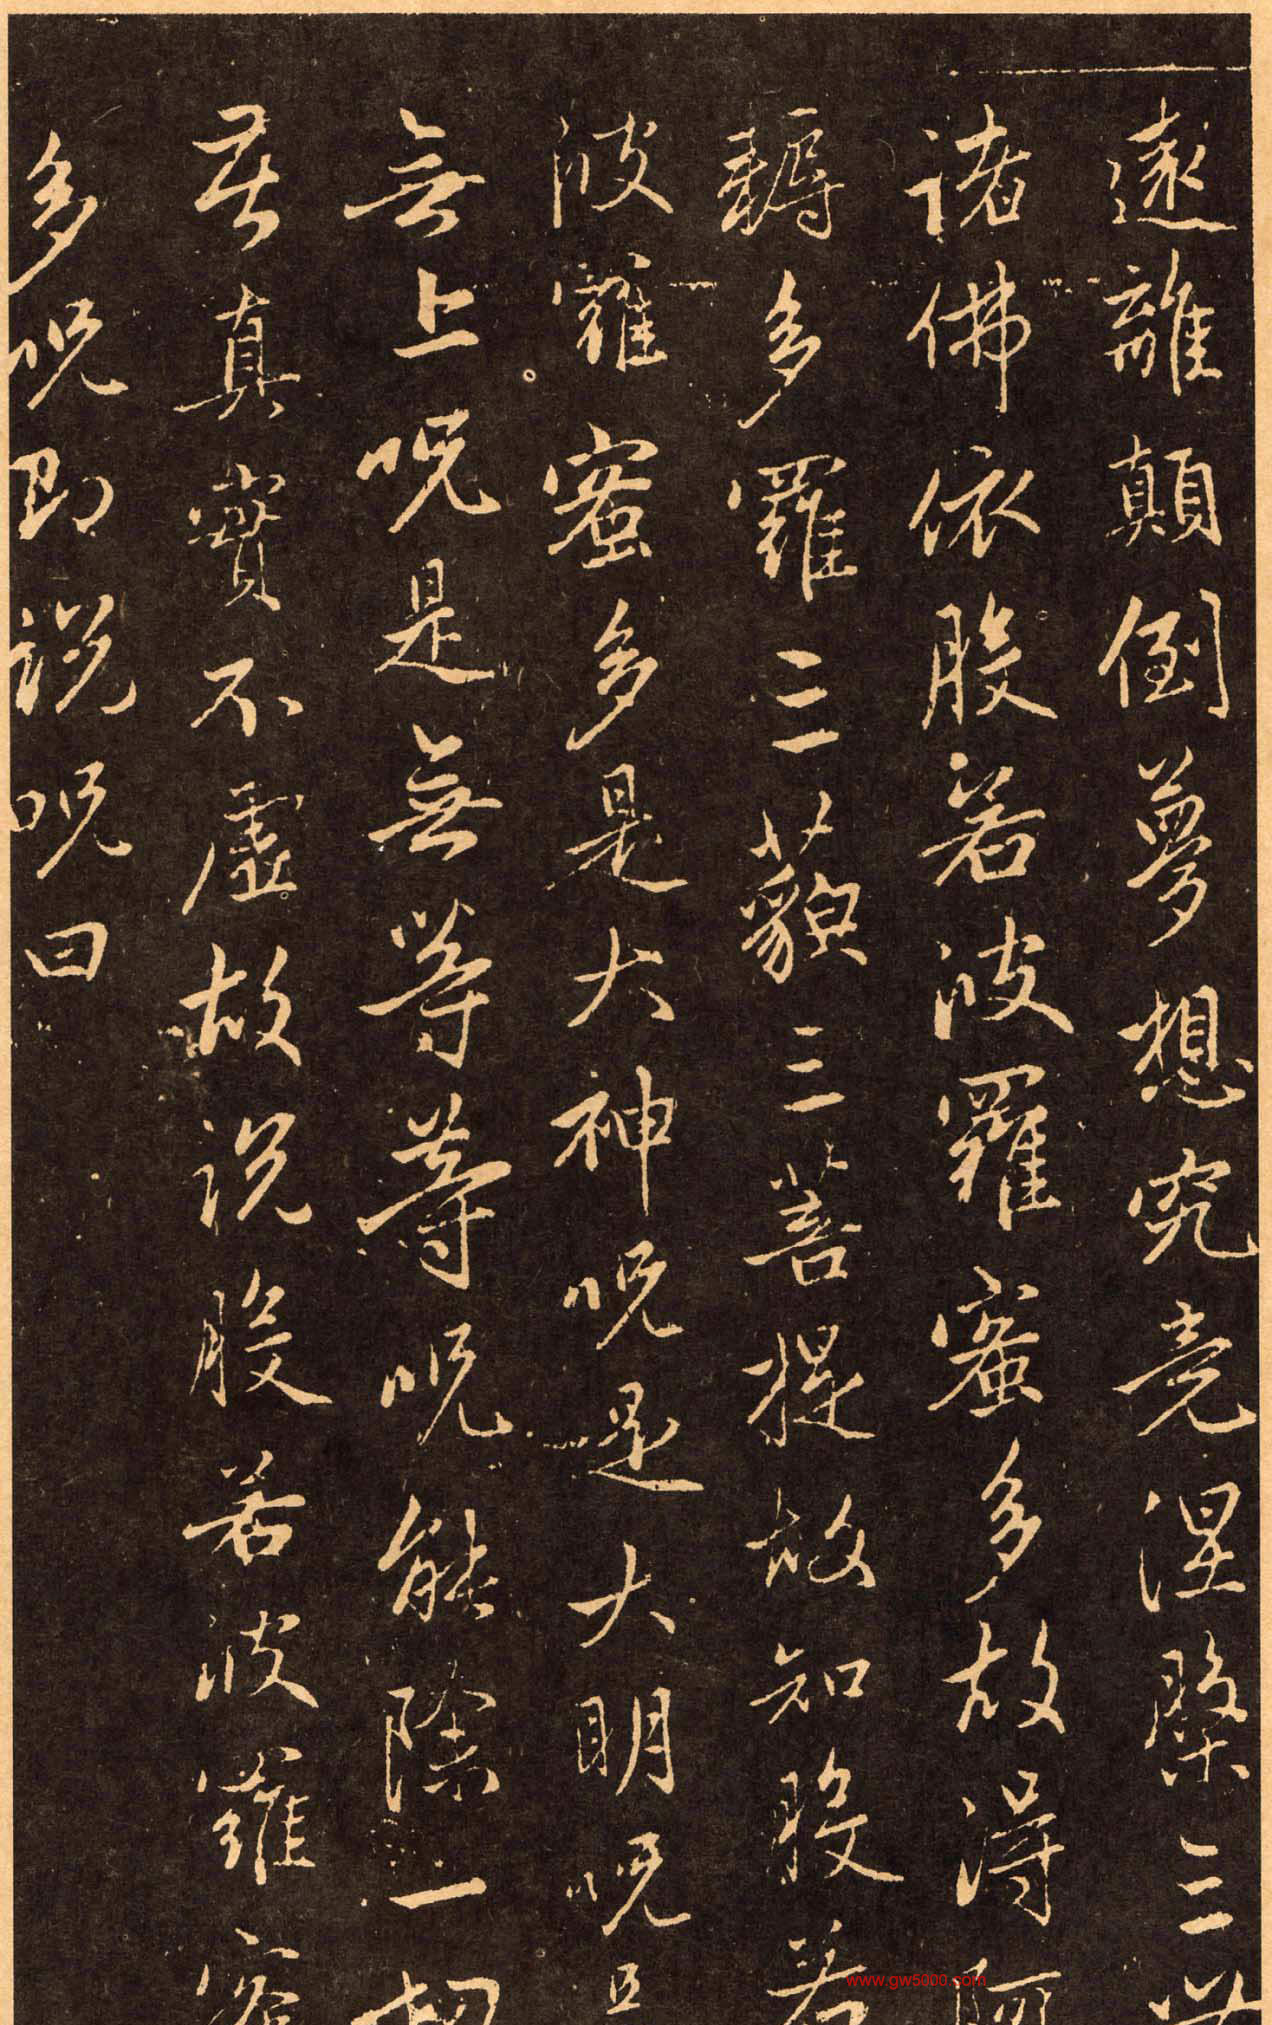 遠離顛倒夢想究竟涅槃三世
諸佛依般若波羅蜜多故得阿
耨多羅三藐三菩提故知般若
波羅蜜多是大神呪是大明呪是
無上呪是無等等呪能除一切
苦真實不虛故說般若波羅蜜
多呪即說呪曰
www.gw5000.com